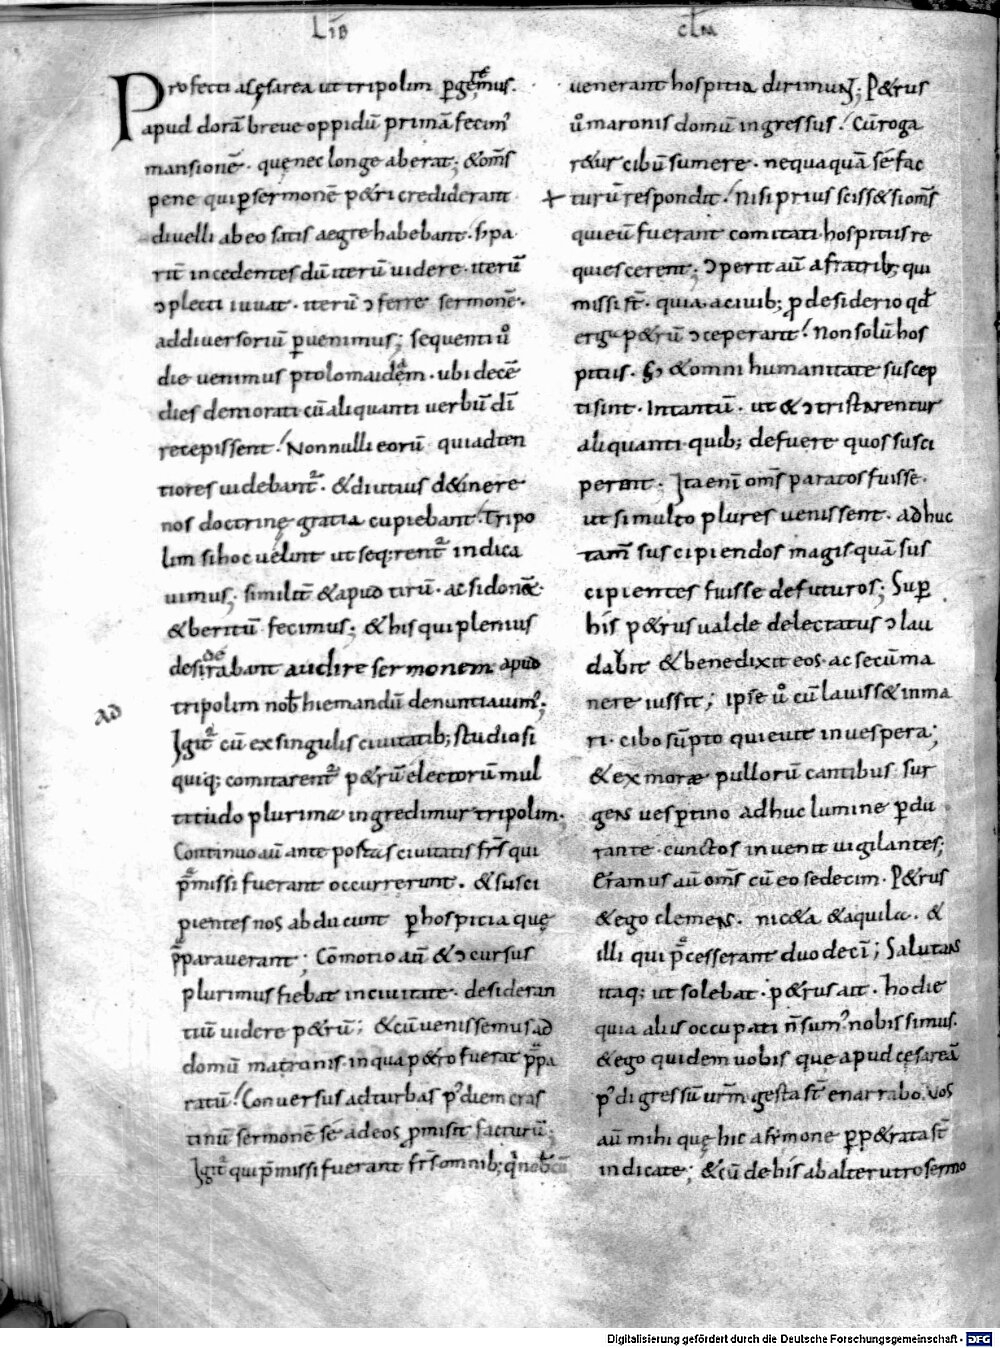 LIB CLM
Profecti a cęsarea ut tripolim p̄gerem̄us.
apud dorā breue oppidū primā fecim᾽
mansionē. quę nec longe aberat; & om̄s
pene qui p̱ sermonē p&ri crediderant
diuelli ab eo satis aegre habebant. s; pa
rit̄ incedentes dū iterū uidere. iterū
ɔplecti iuuat. iterū ɔferre sermonē.
ad diuersoriū p̱uenimus; sequenti u°
die uenimus ptolomaidem. ubi decē
dies demorati cū aliquanti uerbū dī
recepissent. Nonnulli eorū qui adten
tiores uidebant᾽. & diutius d&inere
nos doctrinę gratia cupiebant. Tripo
lim si hoc uelint ut seq;rent᾽ indica
uimus; similit̄ & apud tirū. ac sidonē.
& beritū fecimus; & his qui plenius
desiderabant audire sermonem apud
tripolim nob̄ hiemandū denuntiauim᾽;
AD
Igit᾽ cū ex singulis ciuitatib; studiosi
quiq; comitarent᾽ p&rū electorū mul
titudo plurima ingredimur tripolim.
Continuo aū ante portas ciuitatis fr̄s qui
p̄missi fuerant occurrerunt. & susci
pientes nos abducunt p̱ hospitia quę
p̄parauerant; Cōmotio aū & ɔcursus
plurimus fiebat in ciuitate. desideran
tiū uidere p&rū; & cū uenissemus ad
domū matronis. in qua p&ro fuerat p̄pa
ratū. Conuersus ad turbas p᾽ diem cras
tinū sermonē sē ad eos p̱misit facturū;
Igit᾽ qui p̄missi fuerant fr̄s omnib; q̄ nob̄cū
uenerant hospitia dirimunt; P&rus
u° maronis domū ingressus. Cū roga
r&ur cibū sumere. nequaquā sē fac
turū respondit. Nisi prius sciss& si om̄s
qui eū fuerant comitati hospitiis re
quiescerent; ɔperit aū a fratrib; qui
missi s̄t. quia a ciuib; p̱ desiderio qd̄
erga p&rū ɔceperant. Non solū hos
pitiis. s; & omni humanitate suscep
ti sint. Intantū. ut & ɔtristarentur
aliquanti quib; defuere quos susci
perent. Ita enī om̄s paratos fuisse.
ut si multo plures uenissent. adhuc
tam̄ suscipiendos magis quā sus
cipientes fuisse defuturos; Sup̱
his p&rus ualde delectatus ɔlau
dabit & benedixit eos. ac secū ma
nere iussit; ipse u° cū lauiss& in ma
ri. cibo sūpto quieuit in uespera;
& ex more pullorū cantibus sur
gens uesp̱tino adhuc lumine p̱du
rante. cunctos inuenit uigilantes;
Eramus aū om̄s cū eo sedecim. P&rus
& ego clemens. nic&a & aquila. &
illi qui p̄cesserant duodecī; Salutans
itaq; ut solebat. p&rus ait. hodie
quia aliis occupati n̄ sum᾽ nobis simus.
& ego quidem uobis que apud cęsareā
p᾽ digressū urm̄ gesta s̄t enarrabo. Vos
aū mihi quę hic a simone p̱p&rata s̄t
indicate; & cū de his ab alterutro sermo
Digitalisierung gefördert durch die Deutsche Forschungsgemeinschaft - DFG